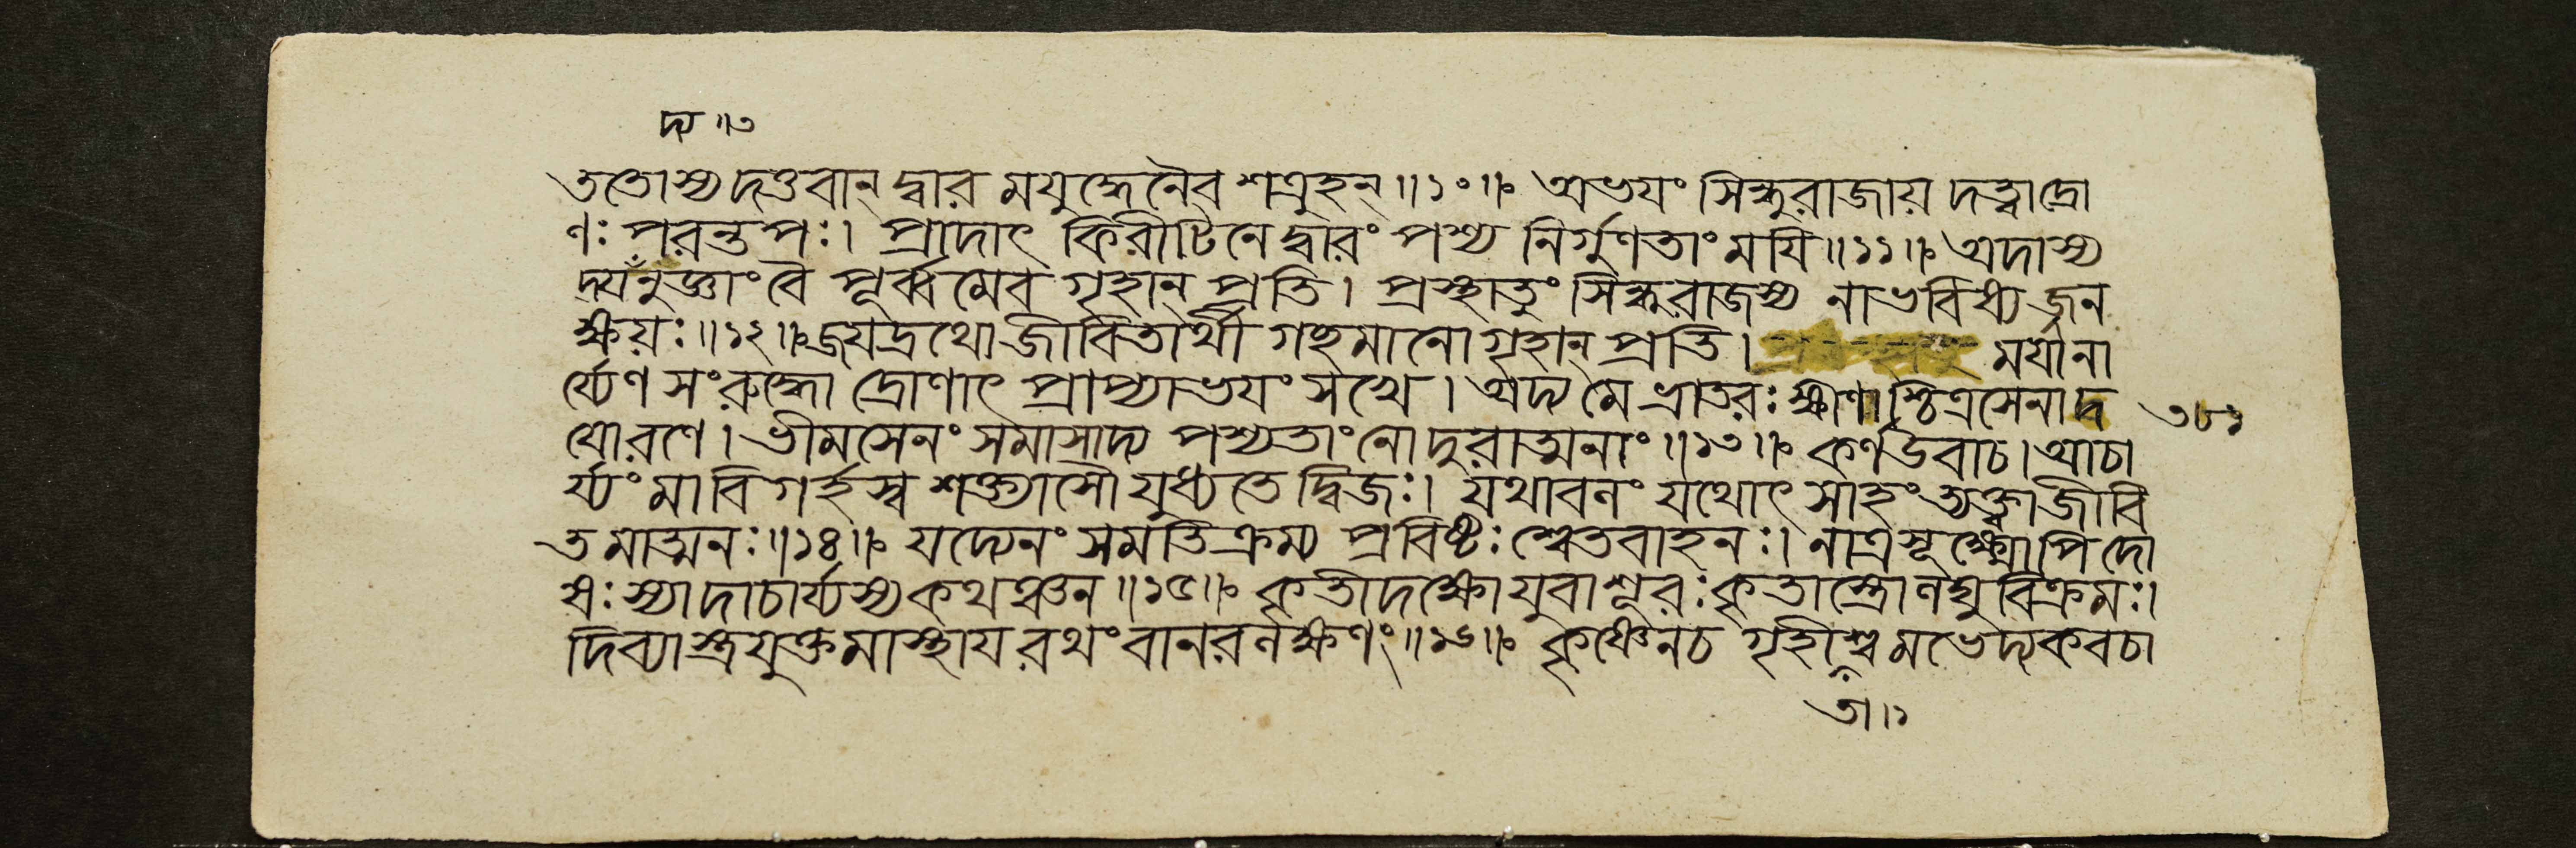 দ্য ॥৩
ততোস্য দত্তবান্ দ্বার মযুদ্ধেনৈব শত্রুহন্ ॥১০॥ অভযং সিন্ধুরাজায় দত্ত্বা দ্রো
ণঃ পরন্তপঃ। প্রাদাৎ কিরীটিনে দ্বারং পশ্য নির্গুণতাং মযি ॥১১॥ যদাস্য
দ্যনুজ্ঞাং বৈ পূর্ব্বমেব গৃহান্ প্রতি। প্রস্থাতুং সিন্ধুরাজস্য নাভবিষ্যজ্জন
ক্ষয়ঃ ॥১২॥ জযদ্রথো জীবিতার্থী গচ্ছমানো গৃহান্ প্রতি। মযানা
র্য্যেণ সংরুদ্ধো দ্রোণাৎ প্রাপ্যাভযং সখে। অদ্য মে ভ্রাতরঃ ক্ষীণাশ্চিত্রসেনাদ
যোরণে। ভীমসেনং সমাসাদ্য পশ্যতাং নো দুরাত্মনাং ॥১৩॥ কর্ণ উবাচ। আচা
র্য্যং মা বিগর্হস্ব শক্ত্যাসৌ যুধ্যতে দ্বিজঃ। যথাবলং যথোৎসাহং ত্যক্ত্বা জীবি
তমাত্মনঃ ॥১৪॥ যদ্যেনং সমতিক্রম্য প্রবিষ্টঃ শ্বেতবাহনঃ। নাত্র সূক্ষ্মোপি দো
ষঃ স্যাদাচার্য্যস্য কথঞ্চন ॥১৫॥ কৃতী দক্ষো যুবা শূরঃ কৃতাস্ত্রো লঘুবিক্রমঃ।
দিব্যাস্ত্রযুক্তমাস্থায রথং বানরলক্ষণং ॥১৬॥ কৃষ্ণেন চ গৃহীশ্বমভেদ্যকবচা
তা ।১
৩৮১